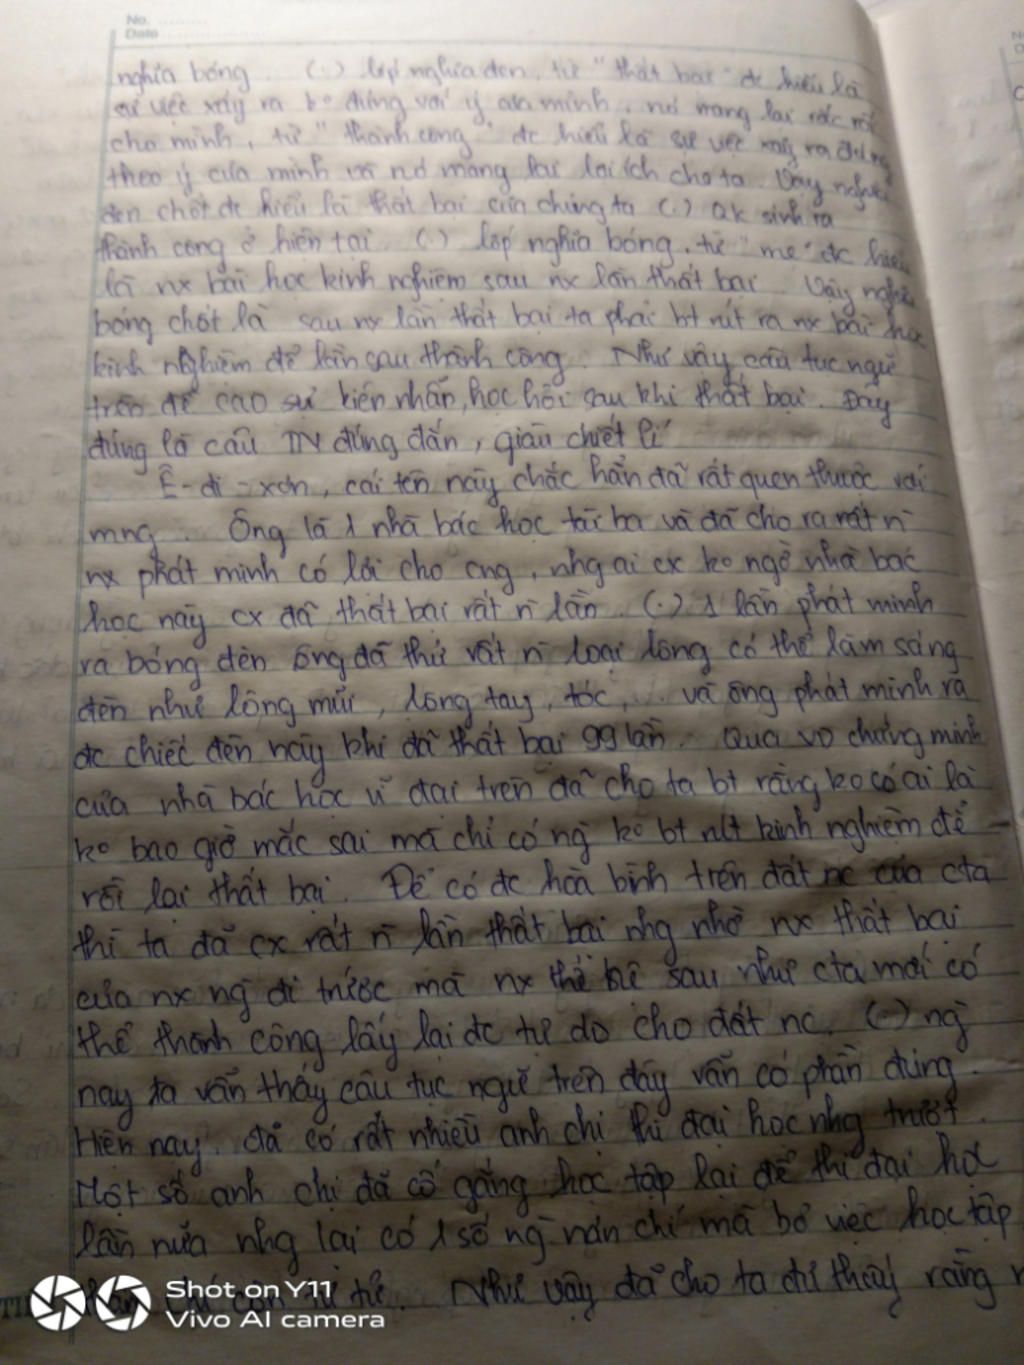 No.
Date
nghĩa bóng. (.) lớp nghĩa đen, từ "thất bại" đc hiểu là
sự việc xảy ra ko đúng với ý của mình, nó mang lại rắc rối
cho mình, từ "thành công" đc hiểu là sự việc xảy ra đúng
theo ý của mình và nó mang lại lợi ích cho ta. Vậy nghĩa
đen chốt đc hiểu là thất bại của chúng ta (.) qk sinh ra
thành công ở hiện tại. (.) lớp nghĩa bóng, từ "mẹ" đc hiểu
là nx bài học kinh nghiệm sau nx lần thất bại. Vậy nghĩa
bóng chốt là sau nx lần thất bại ta phải bt rút ra nx bài học
kinh nghiệm để lần sau thành công. Như vậy, câu tục ngữ
trên đề cao sự kiên nhẫn, học hỏi sau khi thất bại. Đây
đúng là câu TN đúng đắn, giàu chiết lí
Ê-đi-xơn, cái tên này chắc hẳn đã rất quen thuộc với
mng. Ông là 1 nhà bác học tài ba và đã cho ra rất n`
nx phát minh có lợi cho cng, nhg ai cx ko ngờ nhà bác
học này cx đã thất bại rất n` lần. (.) 1 lần phát minh
ra bóng đèn ông đã thử rất n` loại lông có thể làm sáng
đèn như lông mũi, lông tay, tóc,... và ông phát minh ra
đc chiếc đèn này khi đã thất bại 99 lần. Qua VD chứng minh
của nhà bác học vĩ đại trên đã cho ta bt rằng ko có ai là
ko bao giờ mắc sai mà chỉ có ng` ko bt rút kinh nghiệm để
rồi lại thất bại. Để có đc hoà bình trên đất nc của cta
thì ta đã cx rất n` lần thất bại nhg nhờ nx thất bại
của nx ng` đi trước mà nx thế hệ sau như cta mới có
thể thành công lấy lại đc tự do cho đất nc. (.) ng`
nay ta vẫn thấy câu tục ngữ trên đây vẫn có phần đúng.
Hiện nay, đã có rất nhiều anh chị thi đại học nhg trượt.
Một số anh chị đã cố gắng học tập lại để thi đại học
lần nữa nhg lại có 1 số ng` nản chí mà bỏ việc học tập
còn tự tử. Như vậy đã cho ta thấy rằng
Shot on Y11
Vivo AI camera